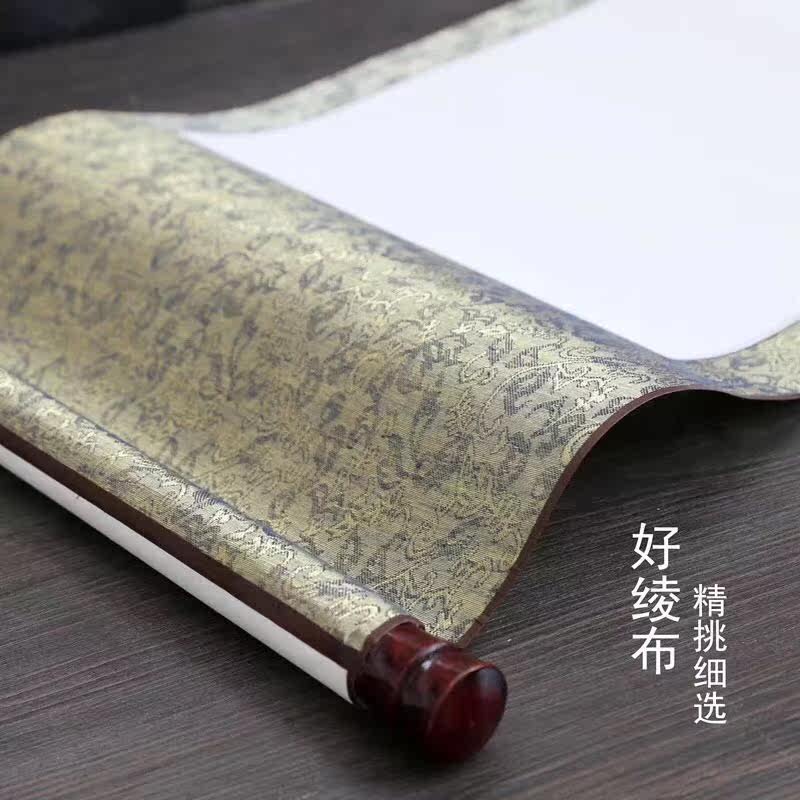 好绫布
精挑细选